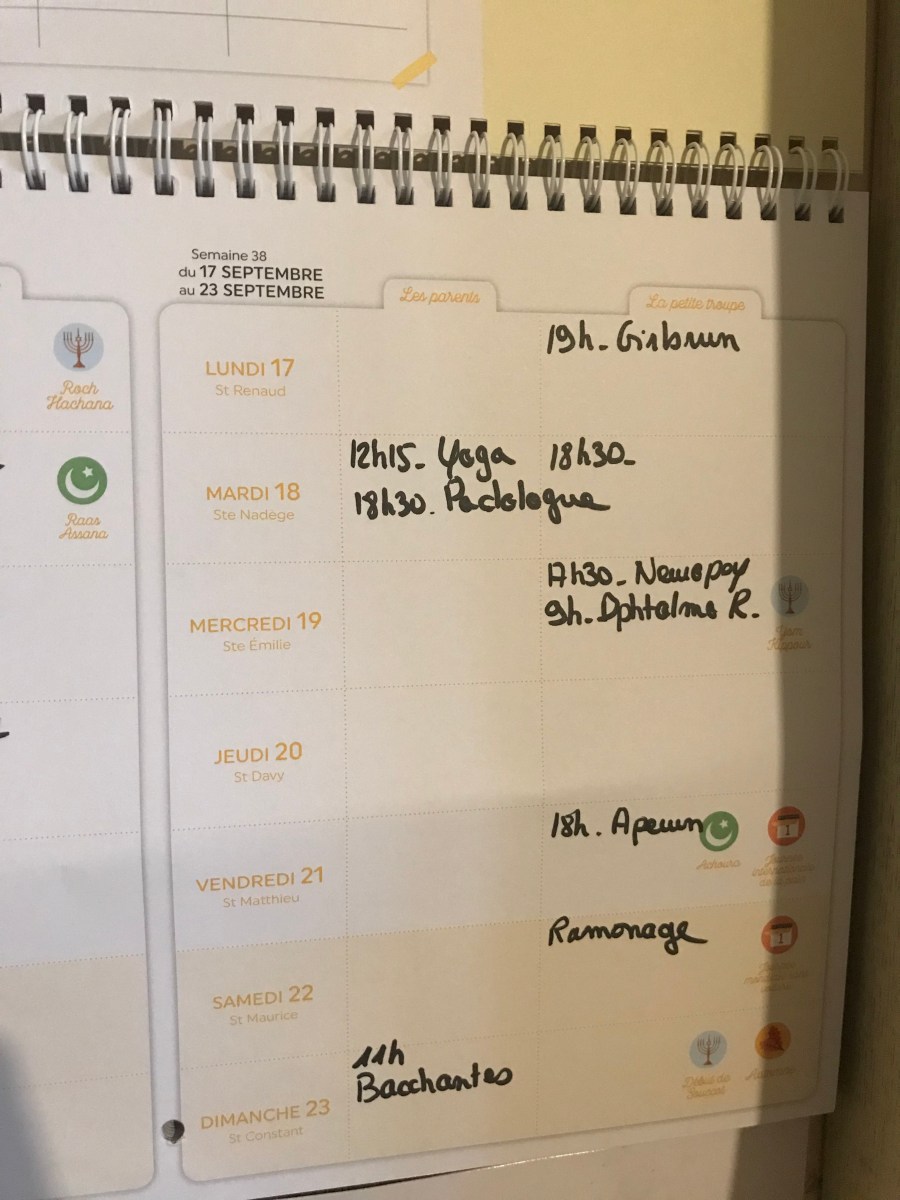 Semaine 38
du 17 SEPTEMBRE
au 23 SEPTEMBRE
Les parents
La petite troupe
Roch
Hachana
Raas
Assana
LUNDI 17
St Renaud
19h-
MARDI 18
Ste Nadège
12h15- Yoga
18h30.
18h30-
MERCREDI 19
Ste Émilie
9h- R.
Yom
Kippour
JEUDI 20
St Davy
VENDREDI 21
St Matthieu
18h.
Achoura
SAMEDI 22
St Maurice
Ramonage
DIMANCHE 23
St Constant
11h
Bacchantes
Début de
Souccot